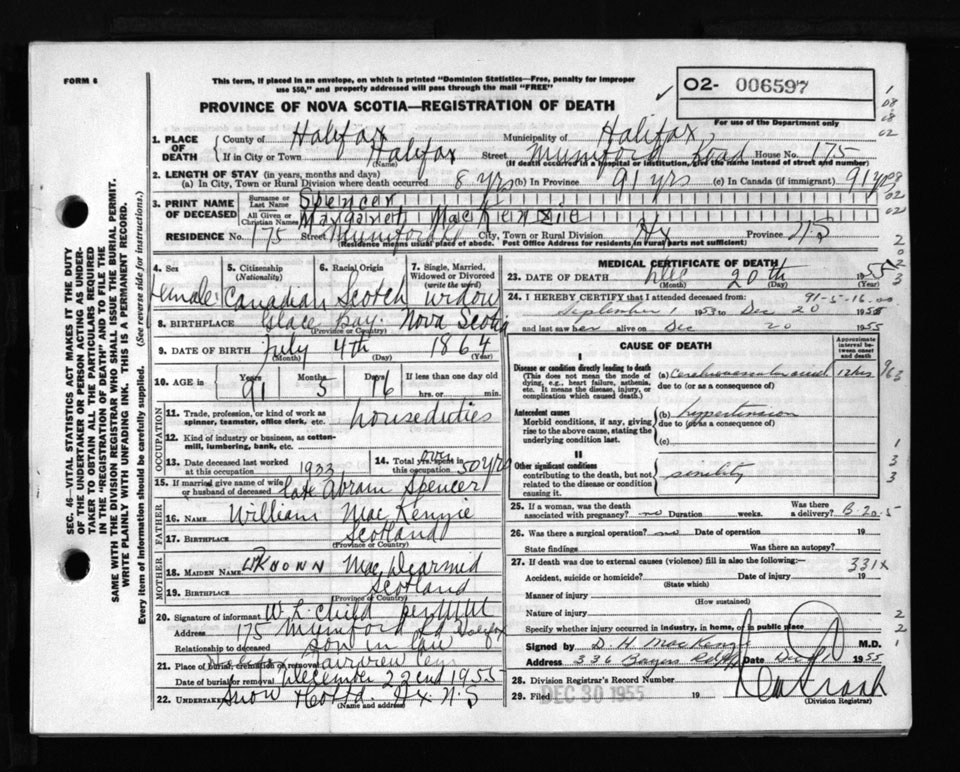 FORM 6
This form, if placed in an envelope, on which is printed "Dominion Statistics—Free, penalty for improper
use $50," and properly addressed will pass through the mail "FREE"
PROVINCE OF NOVA SCOTIA—REGISTRATION OF DEATH
O2- 006597
For use of the Department only
1 08 08 02
SEC. 46—VITAL STATISTICS ACT MAKES IT THE DUTY
OF THE UNDERTAKER OR PERSON ACTING AS UNDER-
TAKER TO OBTAIN ALL THE PARTICULARS REQUIRED
IN THE "REGISTRATION OF DEATH" AND TO FILE THE
SAME WITH THE DIVISION REGISTRAR WHO SHALL ISSUE THE BURIAL PERMIT.
WRITE PLAINLY WITH UNFADING INK. THIS IS A PERMANENT RECORD.
Every item of information should be carefully supplied. (See reverse side for instructions).
1. PLACE OF DEATH
County of Halifax Municipality of Halifax
If in City or Town Halifax Street Mumford Road House No. 175
(Name) (If death occurred in a hospital or institution, give the name instead of street and number)
2. LENGTH OF STAY (in years, months and days)
(a) In City, Town or Rural Division where death occurred 8 yrs (b) In Province 91 yrs (c) In Canada (if immigrant) 91 yrs
3. PRINT NAME OF DECEASED
Surname or Last Name Spencer
All Given or Christian Names Margaret MacKenzie
RESIDENCE No. 175 Street Mumford City, Town or Rural Division Hx Province NS
(Residence means usual place of abode. Post Office Address for residents in Rural parts not sufficient)
4. Sex Female
5. Citizenship (Nationality) Canadian
6. Racial Origin Scotch
7. Single, Married, Widowed or Divorced (write the word) widow
8. BIRTHPLACE Glace Bay. Nova Scotia
(Province or Country)
9. DATE OF BIRTH July 4th 1864
(Month) (Day) (Year)
10. AGE in Years 91 Months 5 Days 16 If less than one day old
hrs. or min.
OCCUPATION
11. Trade, profession, or kind of work as spinner, teamster, office clerk, etc. houseduties
12. Kind of industry or business, as cotton-mill, lumbering, bank, etc.
13. Date deceased last worked at this occupation 1933
14. Total yrs. spent in this occupation over 50 yrs
15. If married give name of wife or husband of deceased late Abram Spencer
FATHER
16. NAME William MacKenzie
17. BIRTHPLACE Scotland
(Province or Country)
MOTHER
18. MAIDEN NAME UKNOWN MacDearmid
19. BIRTHPLACE Scotland
(Province or Country)
20. Signature of informant W. L. Child per MM
Address 175 Mumford Rd Halifax
Relationship to deceased son in law
21. Place of burial, cremation or removal Fairview Cem
Date of burial or removal December 22nd 1955
22. Undertaker Snow Co Ltd. Hx N.S
(Name and address)
MEDICAL CERTIFICATE OF DEATH
23. DATE OF DEATH Dec 20th 1955
(Month) (Day) (Year)
24. I HEREBY CERTIFY that I attended deceased from 91-5-16-00
September 1 1953 to Dec 20 1955
and last saw her alive on Dec 20 1955
CAUSE OF DEATH
Approximate interval between onset and death
I
Disease or condition directly leading to death
(This does not mean the mode of dying, e.g., heart failure, asthenia, etc. It means the disease, injury, or complication which caused death.)
(a) Cerebrovascular accid 12 hrs
due to (or as a consequence of)
Antecedent causes
Morbid conditions, if any, giving rise to the above cause, stating the underlying condition last.
(b) hypertension
due to (or as a consequence of)
(c)
II
Other significant conditions
contributing to the death, but not related to the disease or condition causing it.
senility
25. If a woman, was the death associated with pregnancy? no Duration weeks. Was there a delivery? B-20-5
26. Was there a surgical operation? no Date of operation 19
State findings Was there an autopsy?
27. If death was due to external causes (violence) fill in also the following:— 331X
Accident, suicide or homicide? Date of injury 19
(State which)
Manner of injury
(How sustained)
Nature of injury
Specify whether injury occurred in industry, in home, or in public place
Signed by D. H. MacKenz M.D.
Address 336 Bayers Rd Hfx Date Dec 1955
28. Division Registrar's Record Number
29. Filed DEC 30 1955 19
(Division Registrar)